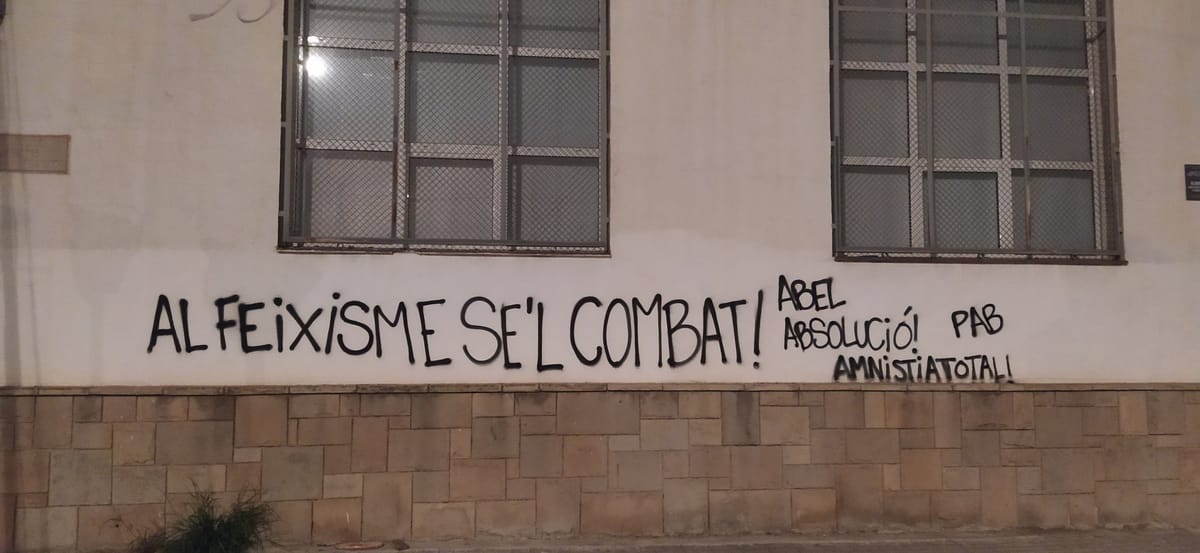 AL FEIXISME SE'L COMBAT!
ABEL
ABSOLUCIÓ!
PAB
AMNISTIA TOTAL!